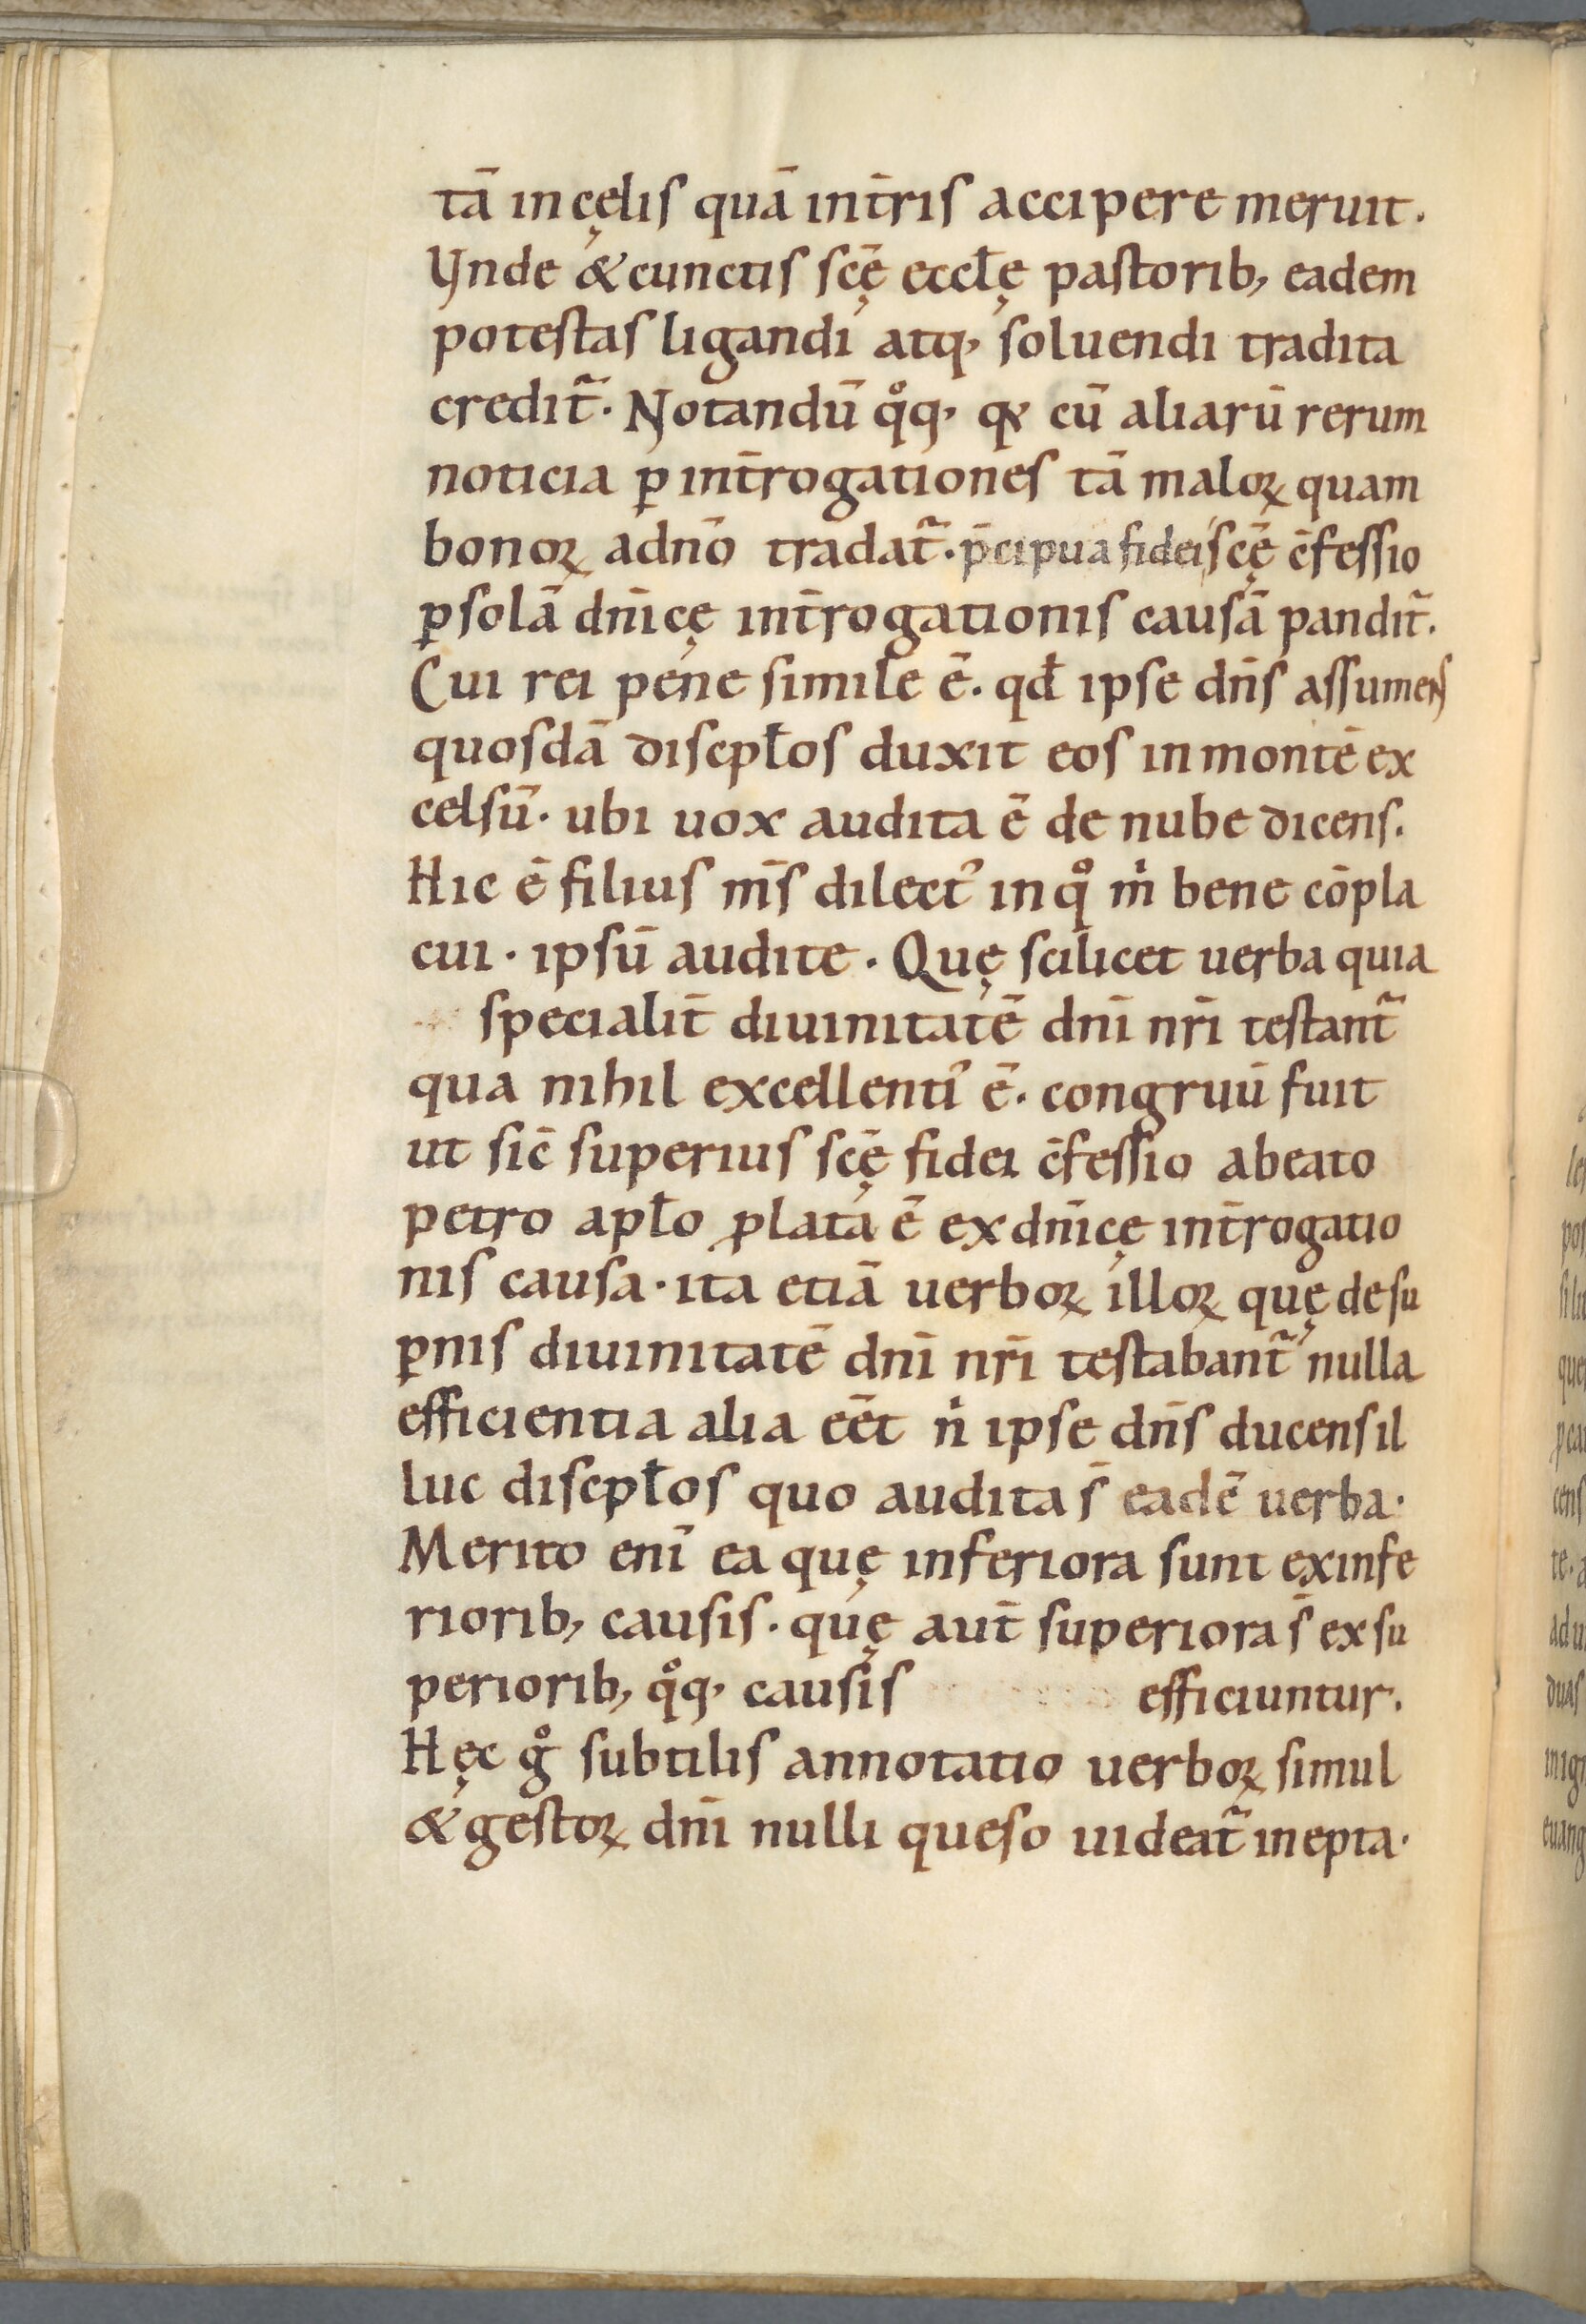 tā in cęlis quā in t̄ris accipere meruit.
Vnde & cunctis sc̄ę eccłę pastorib; eadem
potestas ligandi atq; soluendi tradita
credit᷑. Notandū qͦq; qꝫ cū aliarū rerum
noticia ꝑ int̄rogationes tā maloꝝ quam
bonoꝝ ad nō tradat᷑. p̄cipua fidei sc̄ę c̄fessio
ꝑ solā dn̄icę int̄rogationis causā pandit᷑.
Cui rei pene simile ē. qd̄ ipse dn̄s assumens
quosdā discpłos duxit eos in montē ex
celsū. ubi uox audita ē de nube dicens.
Hic ē filius m̄s dilect᾿ in qͦ mͥ bene cōpla
cui. ipsū audite. Quę scilicet uerba quia
specialit̄ diuinitatē dn̄i nr̄i testant᷑
qua nihil excellenti᾿ ē. congruū fuit
ut sic̄ superius sc̄ę fidei c̄fessio a beato
petro apło ꝓlata ē ex dn̄icę int̄rogatio
nis causa. ita etiā uerboꝝ illoꝝ quę de su
ꝑnis diuinitatē dn̄i nr̄i testabant᷑ nulla
efficientia alia eēt nͥ ipse dn̄s ducens il
luc discpłos quo audita s̄ eadē uerba.
Merito enī ea quę inferiora sunt ex infe
riorib; causis. quę aut̄ superiora s̄ ex su
periorib; qͦq; causis efficiuntur.
Hęc gͦ subtilis annotatio uerboꝝ simul
& gestoꝝ dn̄i nulli queso uideat᷑ inepta.